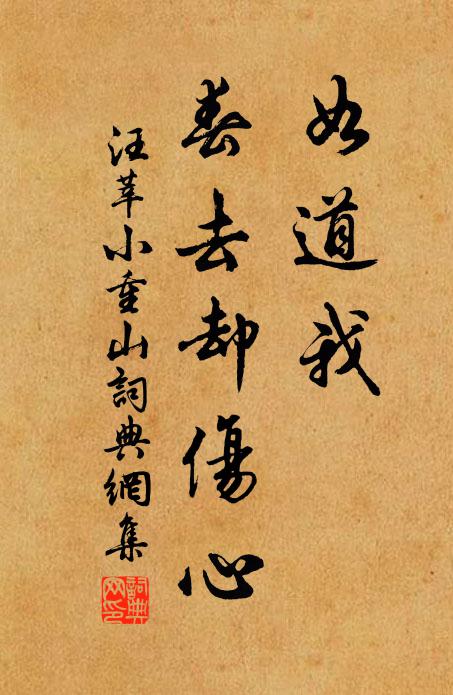 如道我
春去却傷心
汪莘小重山詞典網集
詞典網印